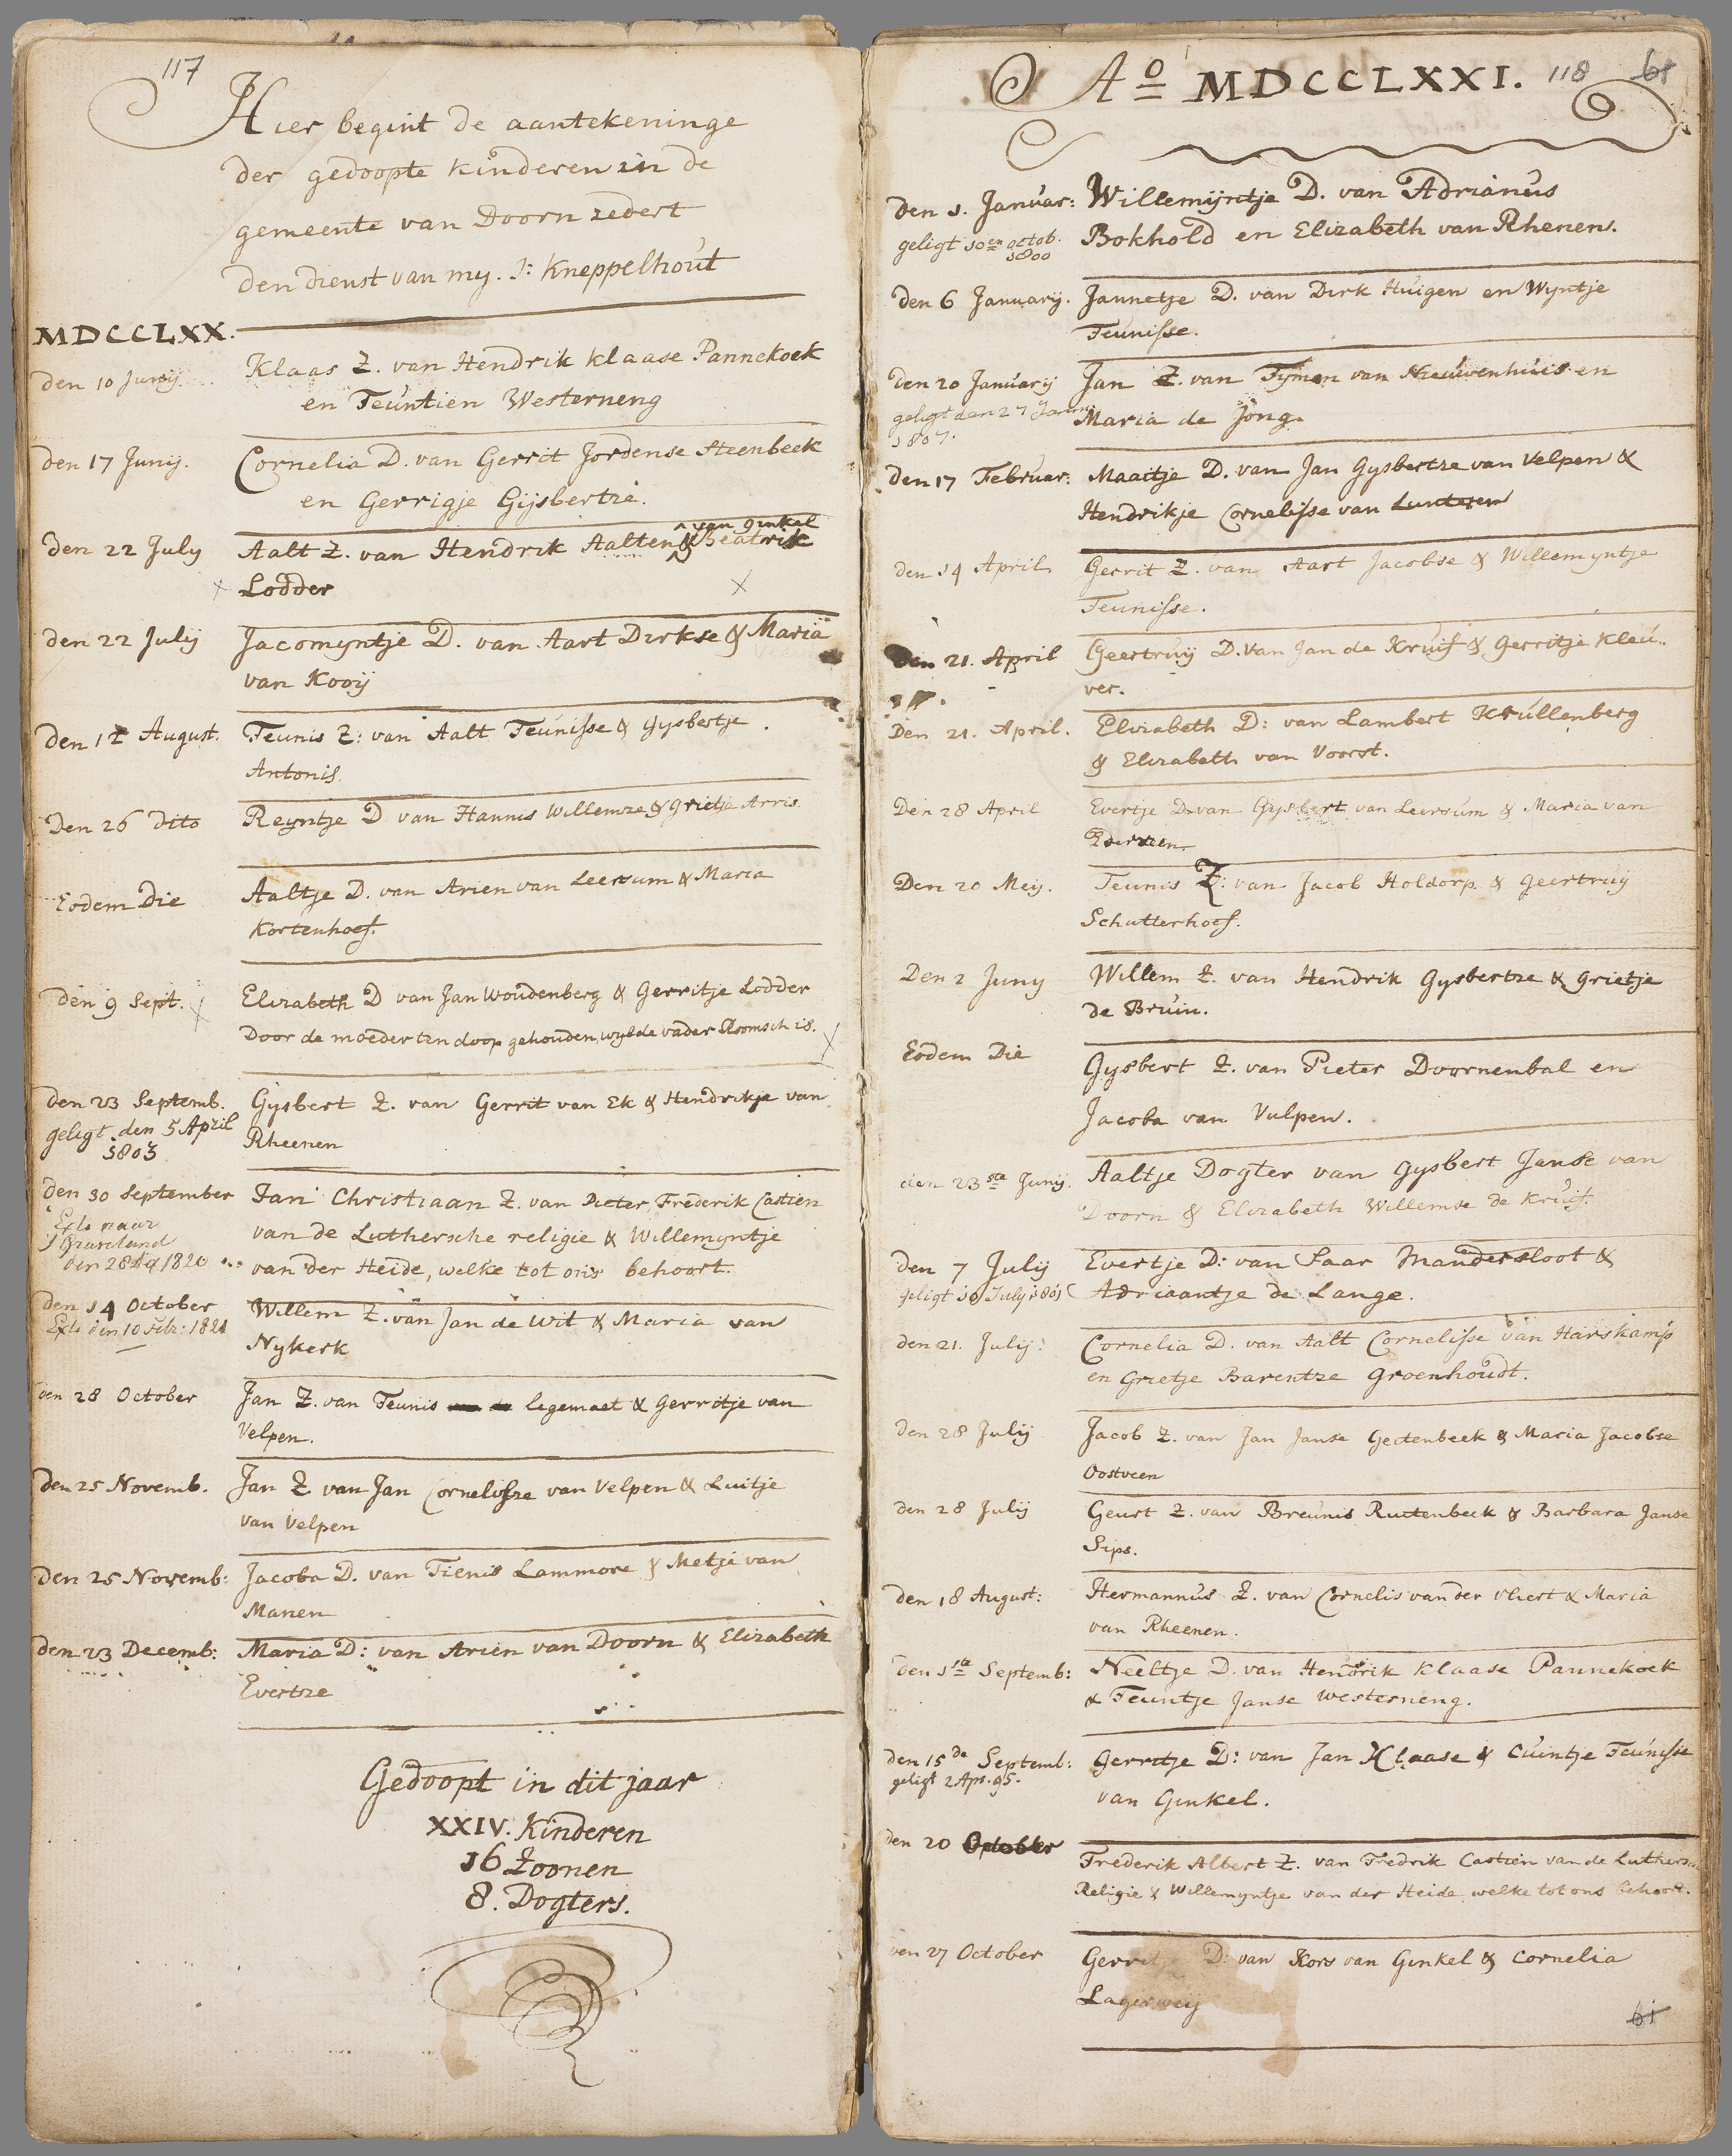 117
Hier begint de aantekeninge
der gedoopte kinderen in de
gemeente van Doorn zedert
den dienst van my. J: Kneppelhout
MDCCLXX.
den 10 Junij. Klaas Z. van Hendrik Klaase Pannekoek
en Teuntien Westerneng
den 17 Junij. Cornelia D. van Gerrit Jordense Steenbeek
en Gerrigje Gijsbertze.
van Ginkel
den 22 July Aalt Z. van Hendrik Aalten & Beatrix
Lodder
den 22 Julij Jacomyntje D. van Aart Dirkse & Maria
van Kooij
den 12 August. Teunis Z: van Aalt Teunisse & Gysbertje
Antonis.
Den 26 dito Reyntje D van Hannis Willemze & Grietje Arris.
Eodem Die Aaltje D. van Arien van Leersum & Maria
Kortenhoef.
den 9 Sept. Elizabeth D van Jan Woudenberg & Gerritje Lodder
Door de moeder ten doop gehouden, wyl de vader Roomsch is.
den 23 Septemb. Gysbert Z. van Gerrit van Ek & Hendrikje van
geligt den 5 April Rheenen
1803
den 30 September Jan Christiaan Z. van Pieter Frederik Castien
Exts naar van de Luthersche religie & Willemyntje
's Graveland
den 28 1820 van der Heide, welke tot ons behoort.
den 14 October Willem Z. van Jan de Wit & Maria van
Exts den 10 Febr: 1821 Nykerk
den 28 October Jan Z. van Teunis legemaet & Gerritje van
Velpen.
den 25 Novemb. Jan Z van Jan Cornelisze van Velpen & Luitje
van Velpen
Den 25 Novemb: Jacoba D. van Tienis Lammore & Metje van
Manen
den 23 Decemb: Maria D: van Arien van Doorn & Elizabeth
Evertze
Gedoopt in dit jaar
XXIV. Kinderen
16 Zoonen
8. Dogters.
Ao MDCCLXXI. 118 61
den 1. Januar: Willemijntje D. van Adrianus
geligt 10en octob. Bokhold en Elizabeth van Rhenen.
1800
den 6 Januarij. Jannetje D. van Dirk Huigen en Wyntje
Teunisse.
den 20 Januarij Jan Z. van Tymen van Nieuwenhuis en
geligt den 27 Janu Maria de Jong.
1807.
den 17 Februar: Maaitje D. van Jan Gysbertze van Velpen &
Hendrikje Cornelisse van Lunteren
den 14 April Gerrit Z. van Aart Jacobse & Willemyntje
Teunisse.
Den 21. April Geertruij D. van Jan de Kruif & Gerritje Kleu..
ver.
Den 21. April. Elizabeth D: van Lambert Krullenberg
& Elizabeth van Voorst.
Den 28 April Evertje D. van Gysbert van Leersum & Maria van
Ederveen.
Den 20 Meij. Teunis Z: van Jacob Holdorp & Geertruij
Schutterhoef.
Den 2 Juny Willem Z. van Hendrik Gysbertze & Grietje
de Bruin.
Eodem Die Gysbert Z. van Pieter Doornenbal en
Jacoba van Vulpen.
den 23ste Junij. Aaltje Dogter van Gysbert Janse van
Doorn & Elizabeth Willemse de Kruif.
den 7 Julij Evertje D: van Saar Mandersloot &
geligt 10 July 1801 Adriaantje de Lange.
den 21. Julij: Cornelia D. van Aalt Cornelisse van Harskamp
en Grietje Barentze Groenhoudt.
den 28 Julij Jacob Z. van Jan Janse Geetenbeek & Maria Jacobse
Oostveen
den 28 Julij Geurt Z. van Breunis Ruitenbeek & Barbara Janse
Sips.
den 18 August: Hermannus Z. van Cornelis van der Vliert & Maria
van Rheenen.
den 1ste Septemb: Neeltje D. van Hendrik Klaase Pannekoek
& Teuntje Janse Westerneng.
den 15de Septemb: Gerritje D: van Jan Klaase & Cuintje Teunisse
geligt 2 Apr. 95. van Ginkel.
den 20 October Frederik Albert Z. van Fredrik Castien van de Luthersche
Religie & Willemyntje van der Heide welke tot ons behoort.
den 27 October Gerritje D: van Kors van Ginkel & Cornelia
Lagerweij
61